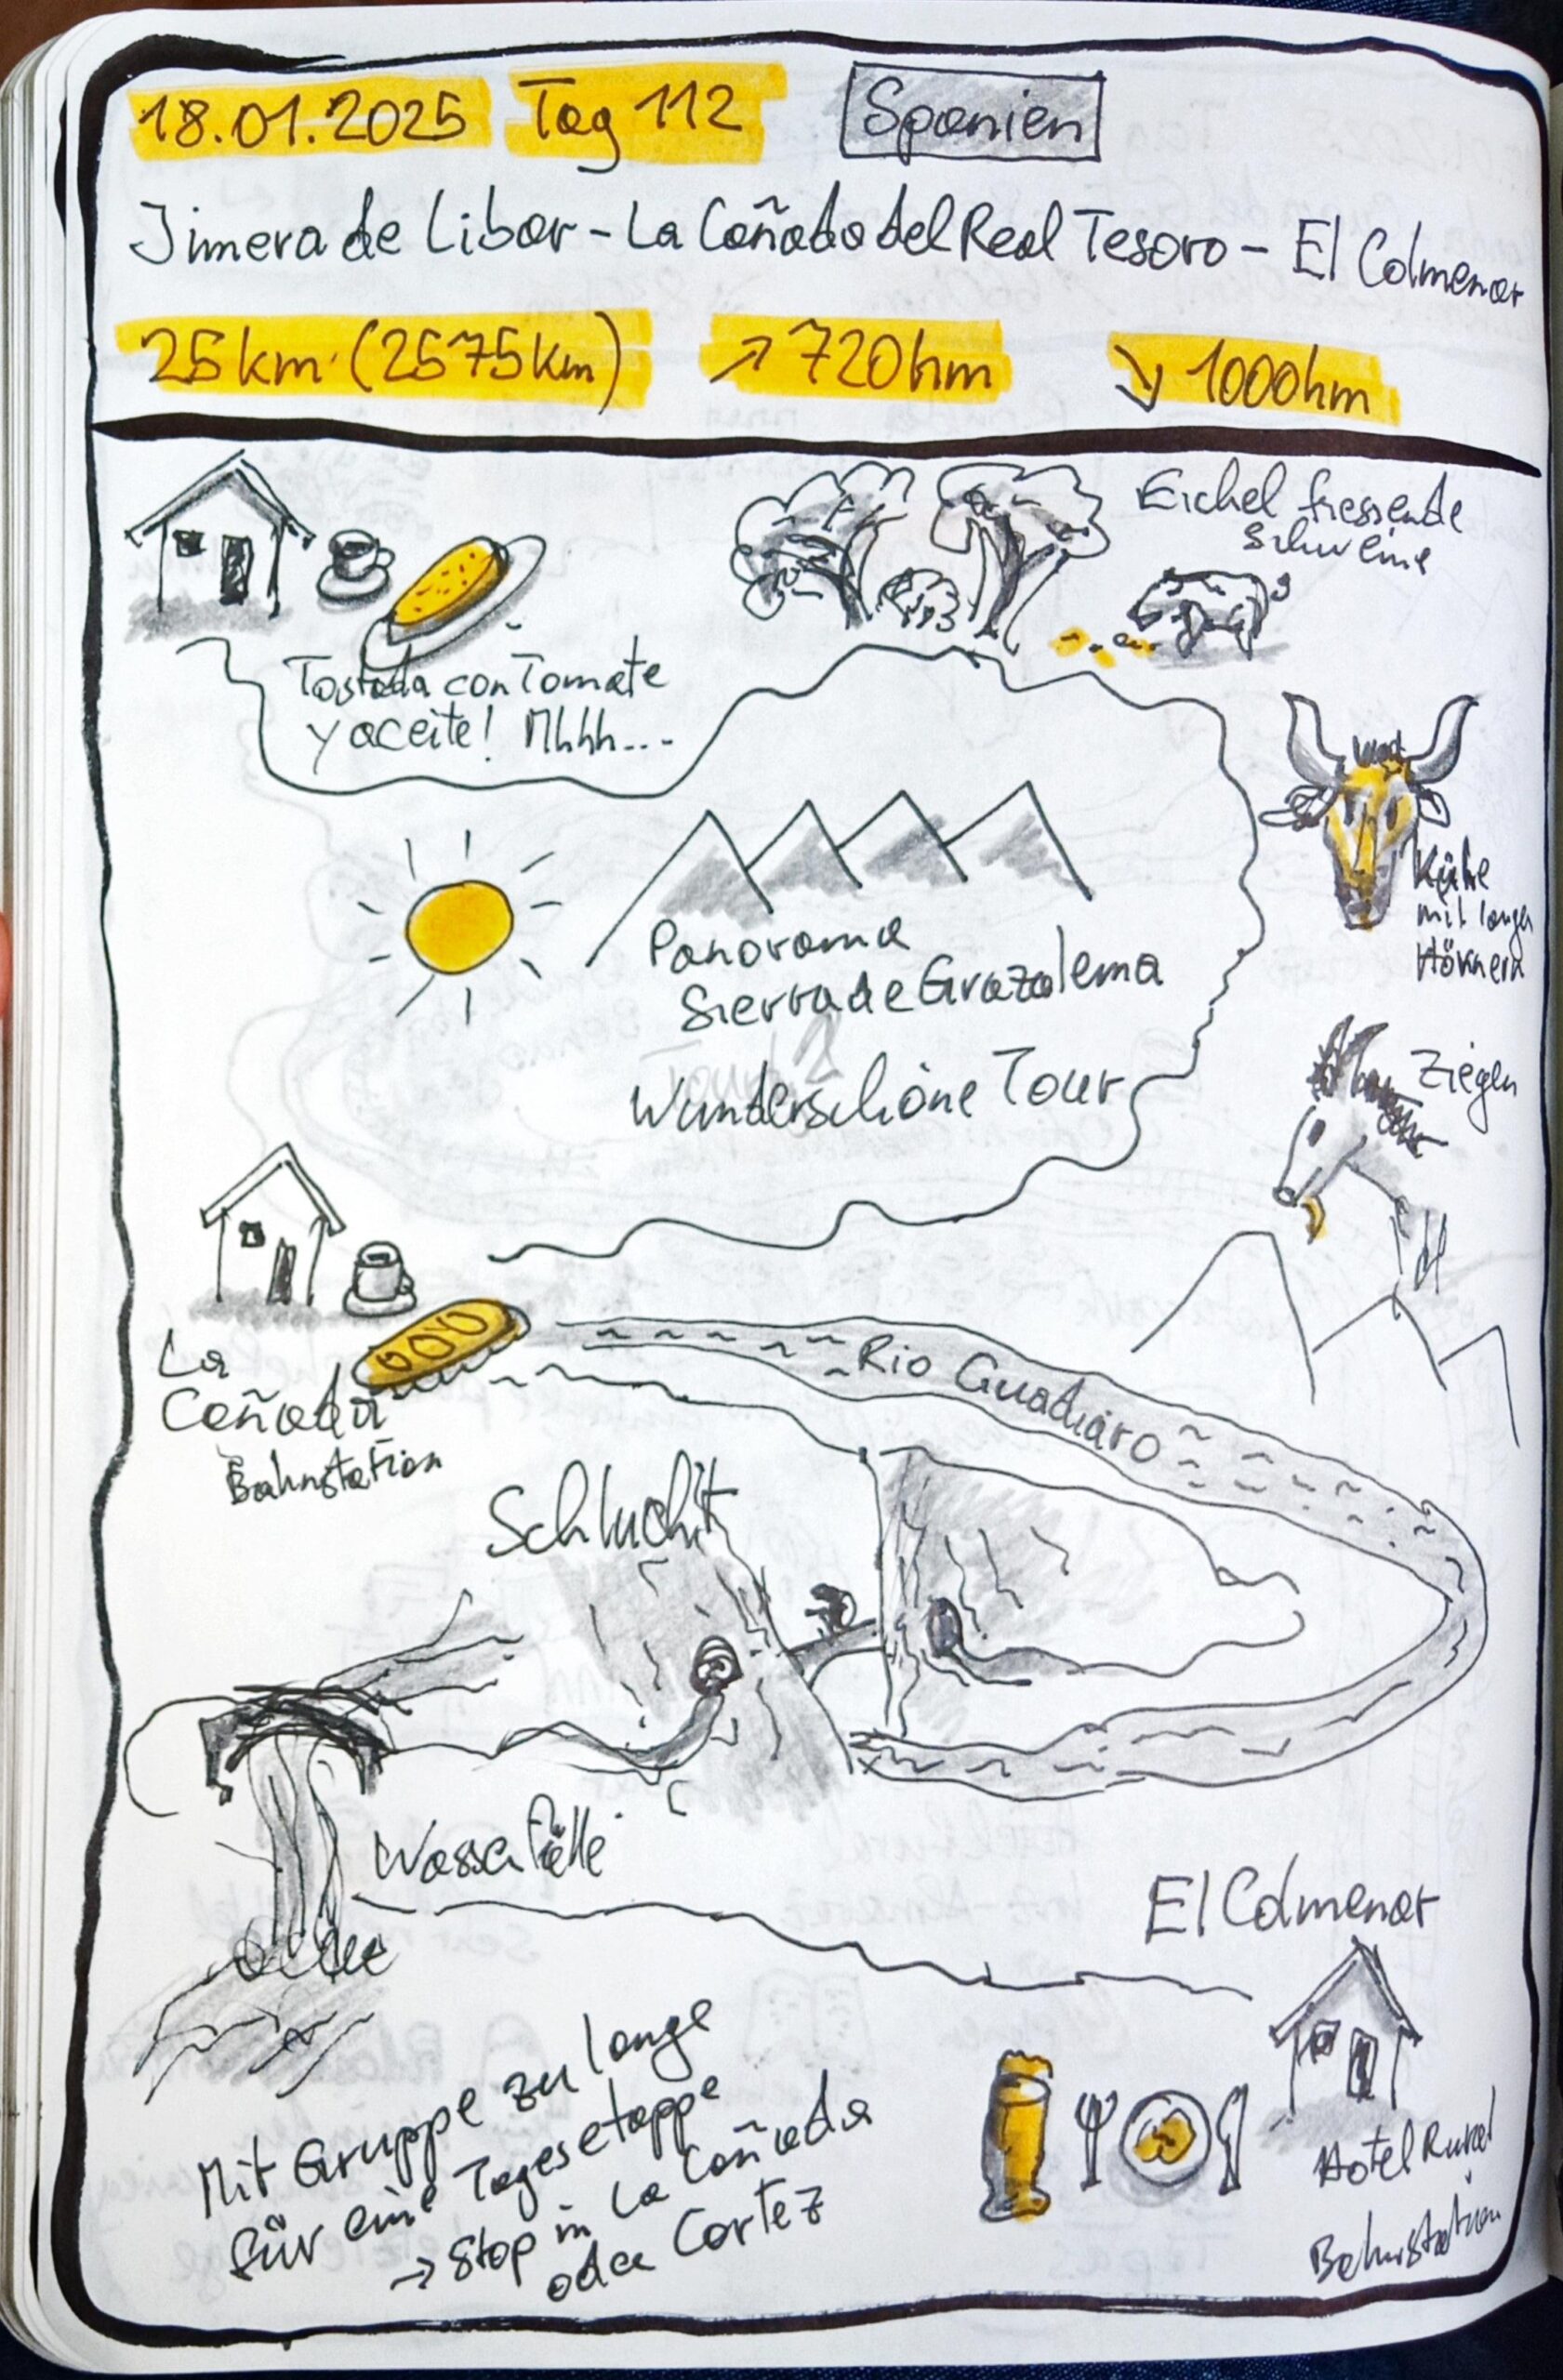 18.01.2025 Tag 112 Spanien
Jimera de Libar - La Cañada del Real Tesoro - El Colmenar
25km (2575km) ↗ 720hm ↘ 1000hm
Eichel fressende
Schweine
Tostada con Tomate
y aceite! Mhhh...
Kühe
mit langen
Hörnern
Panorama
Sierra de Grazalema
Ziegen
Wunderschöne Tour
La
Cañada
Bahnstation
Rio Guadiaro
Schlucht
Wasserfälle
El Colmenar
Mit Gruppe zu lange
für eine Tagesetappe
→ Stop in La Cañada
oder Cortez
Hotel Rural
Bahnstation